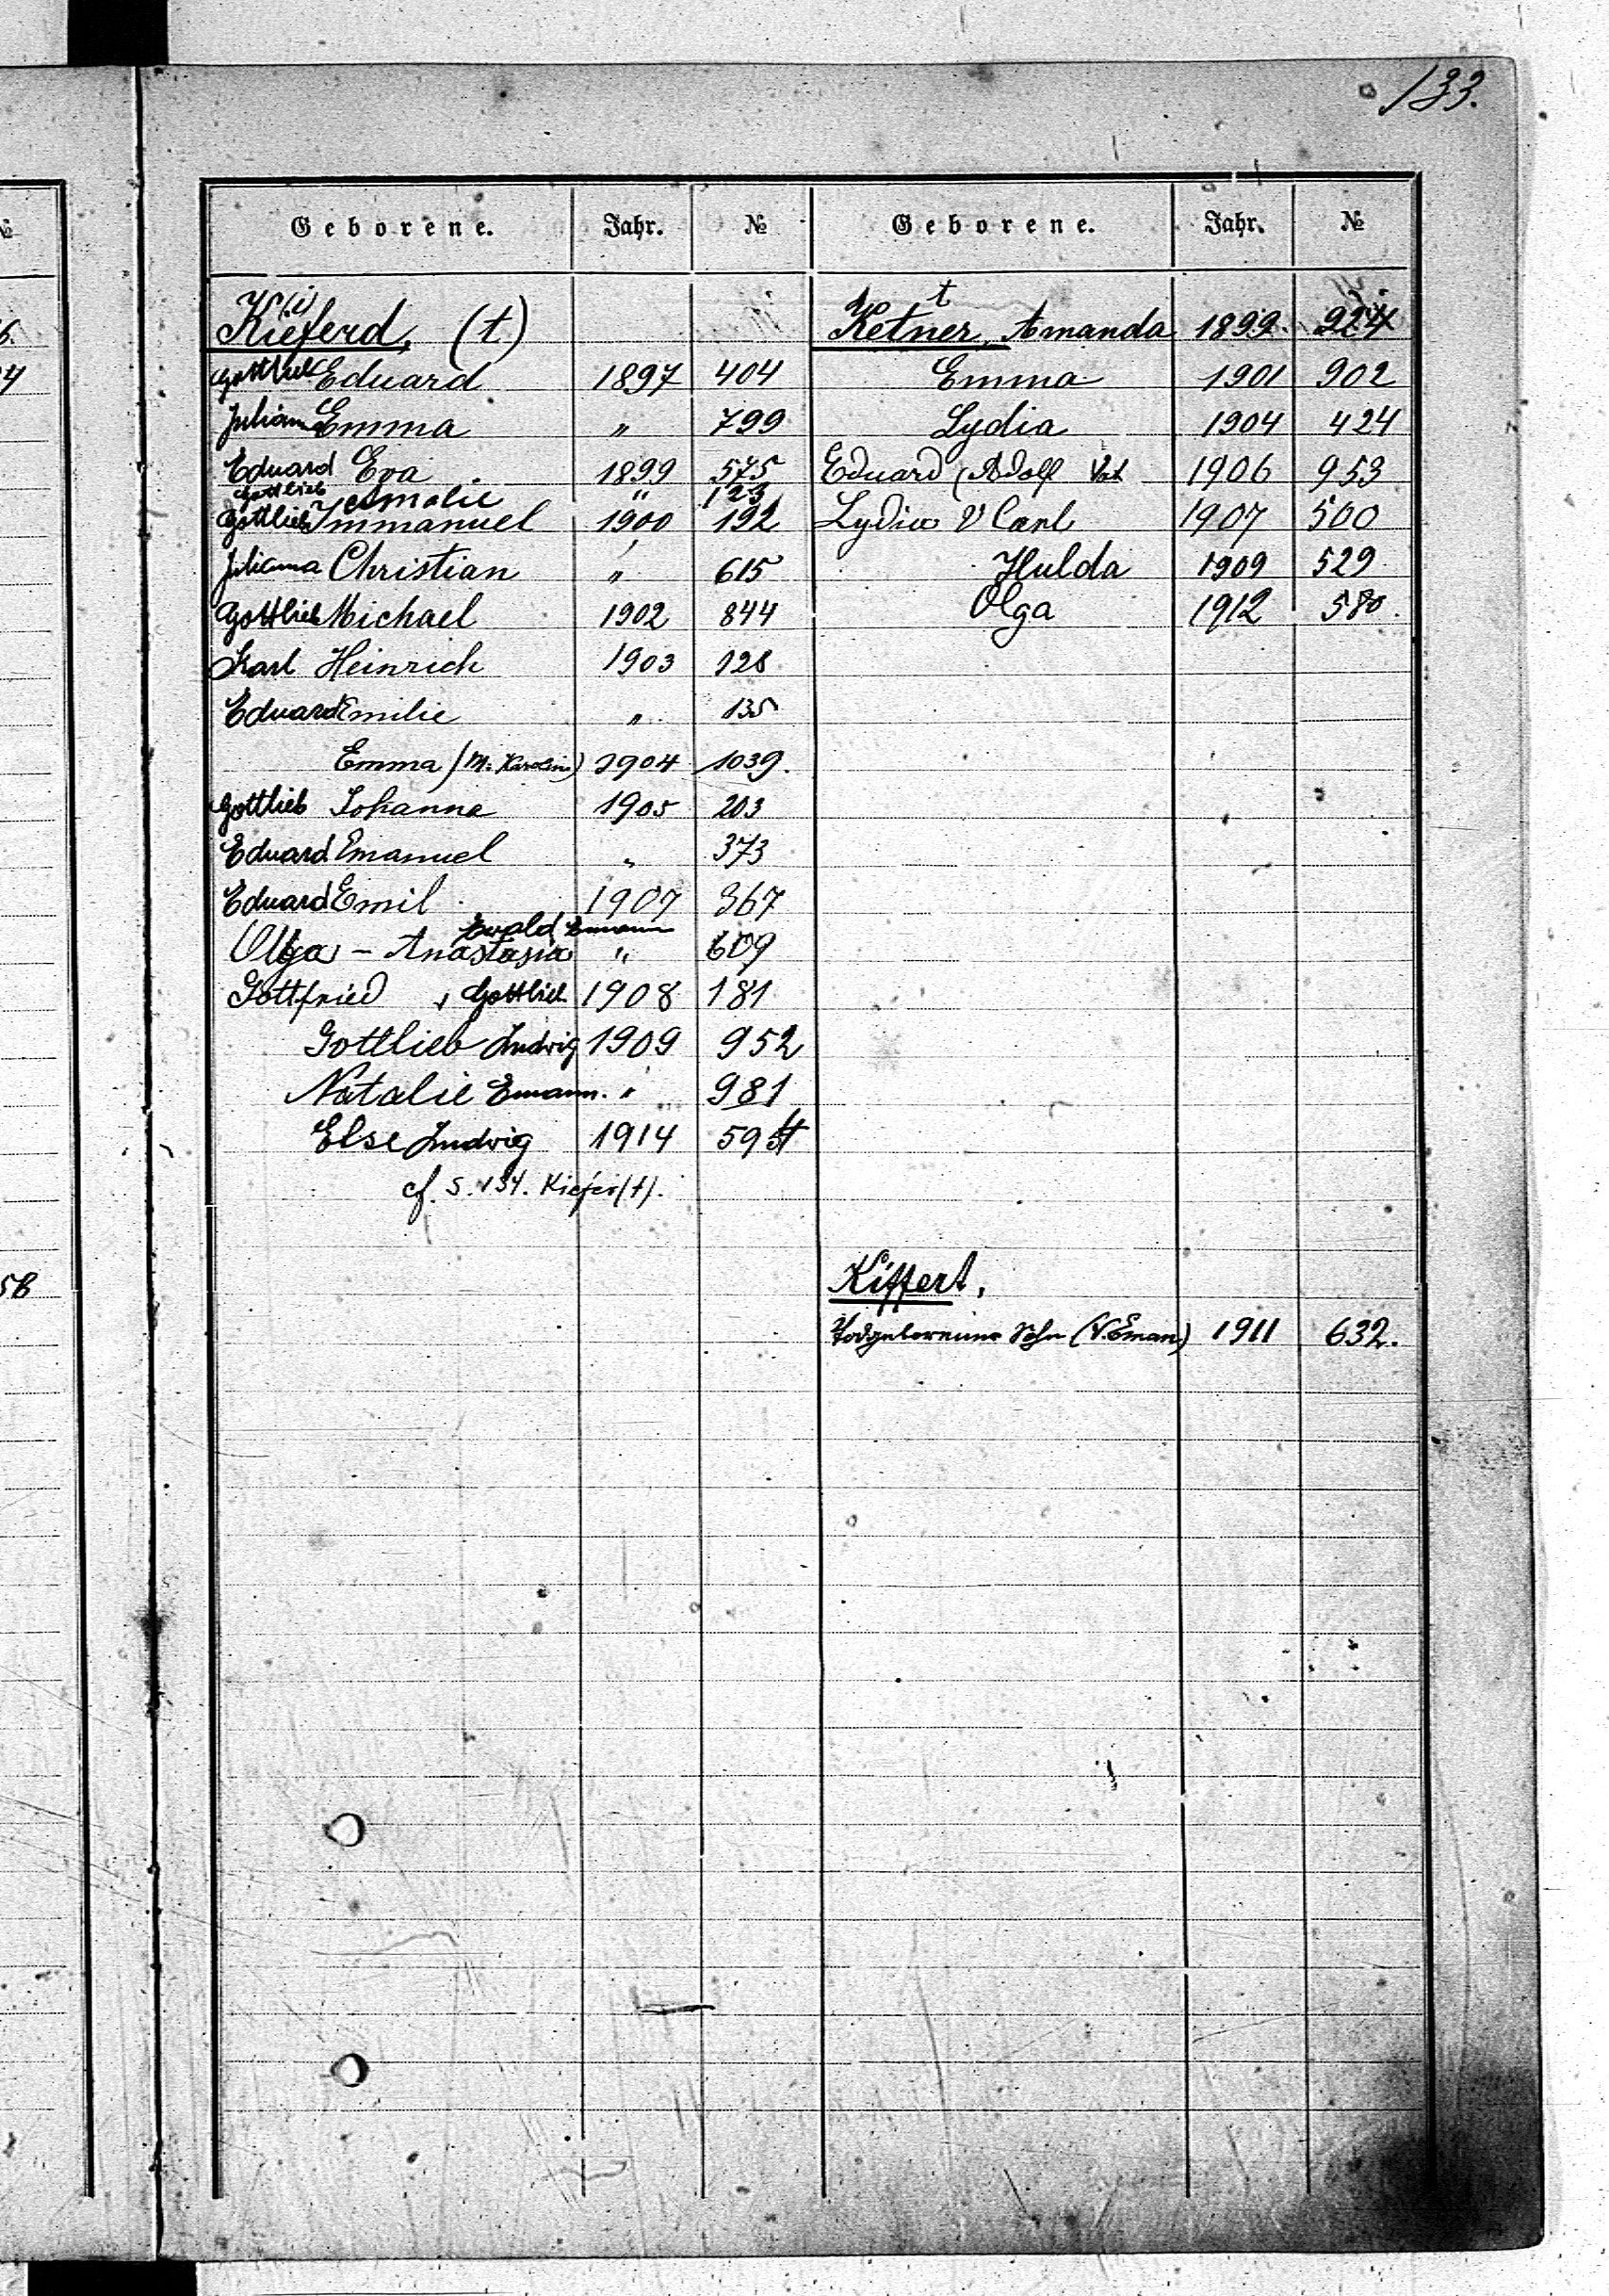 133.
Geborene. Jahr. №
Kieferd, (t)
(i)
Gottlieb Eduard 1897 404
Juliana Emma " 799
Eduard Eva 1899 575
Gottlieb Amalie " 123
Gottlieb Immanuel 1900 192
Juliana Christian " 615
Gottlieb Michael 1902 844
Karl Heinrich 1903 128
Eduard Emilie " 135
Emma (M: Karolin) 1904 1039.
Gottlieb Johanna 1905 203
Eduard Emanuel " 373
Eduard Emil 1907 367
Ewald Emann
Olga - Anastasia " 609
Gottfried, Gottlieb 1908 181
Gottlieb Ludwig 1909 952
Natalie Emann. " 981
Else Ludwig 1914 595
cf. S. 134. Kiefer(t).
Geborene. Jahr. №
t
Ketner, Amanda 1899. 224
Emma 1901 902
Lydia 1904 424
Eduard (Adolf Vat 1906 953
Lydia V Carl 1907 500
Hulda 1909 529
Olga 1912 580.
Kiffert,
Todgeborener Sohn (V. Eman) 1911 632.